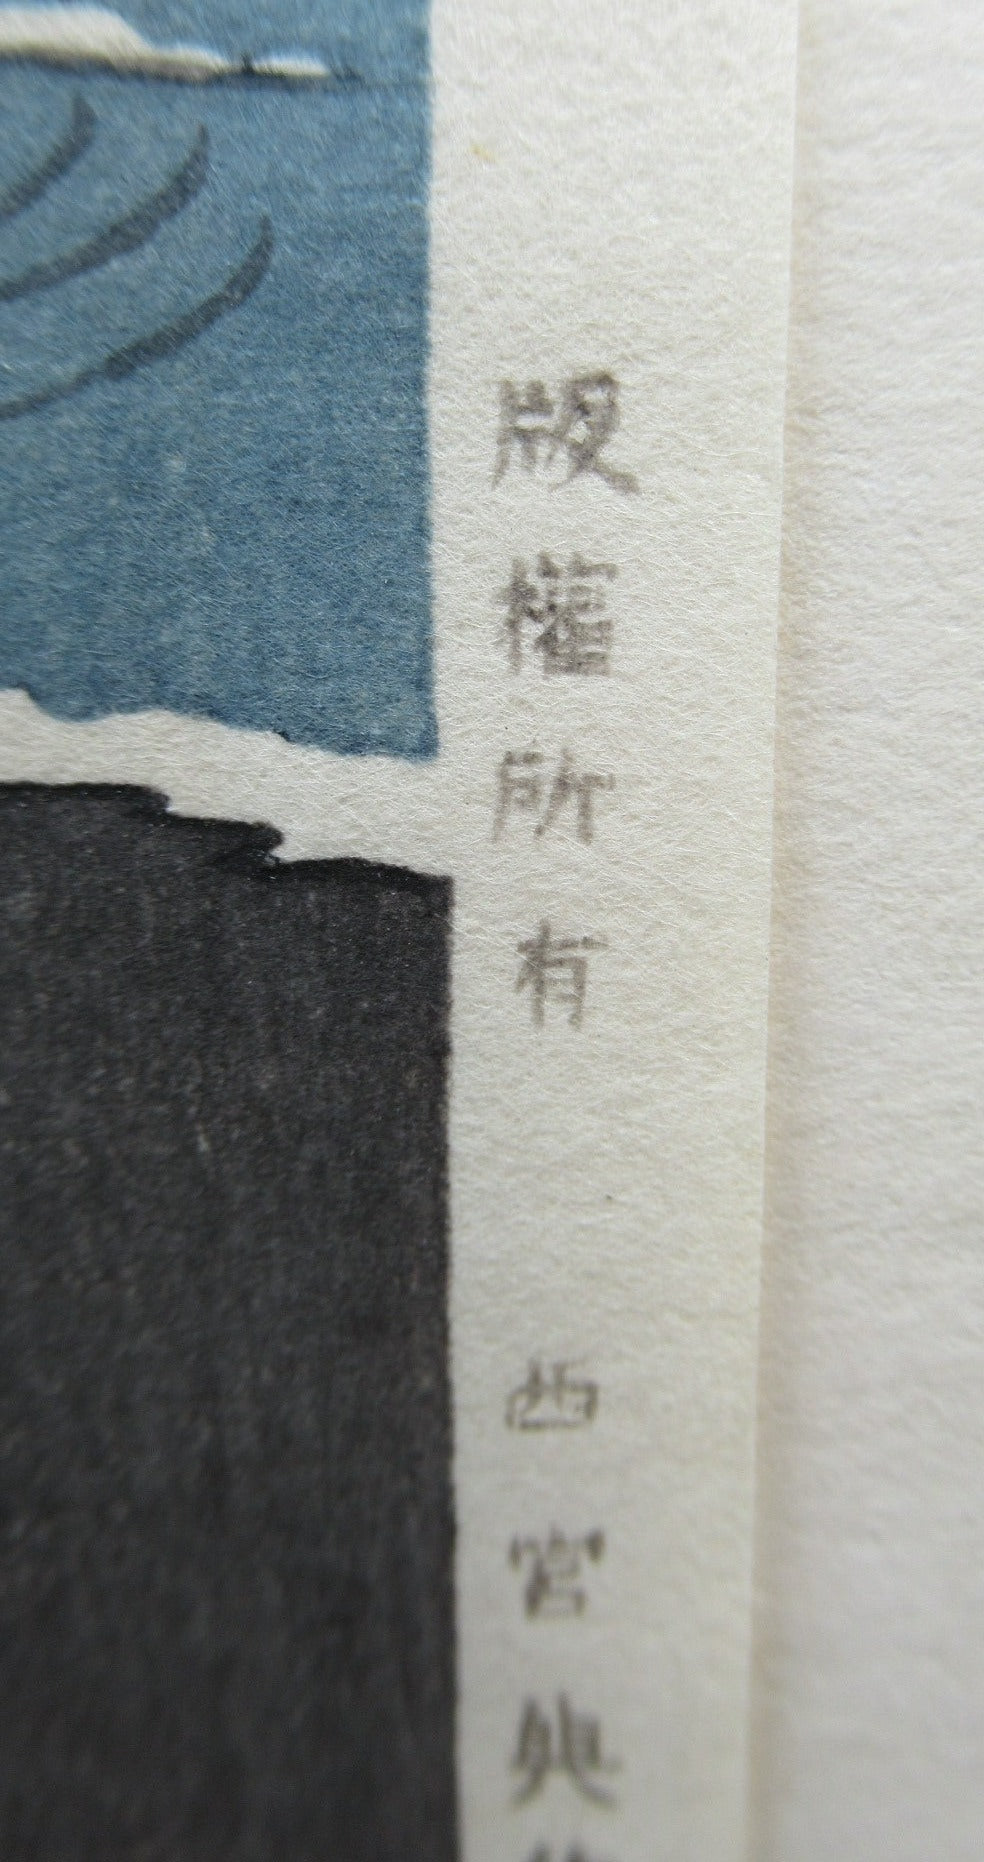 版權所有 西宮與